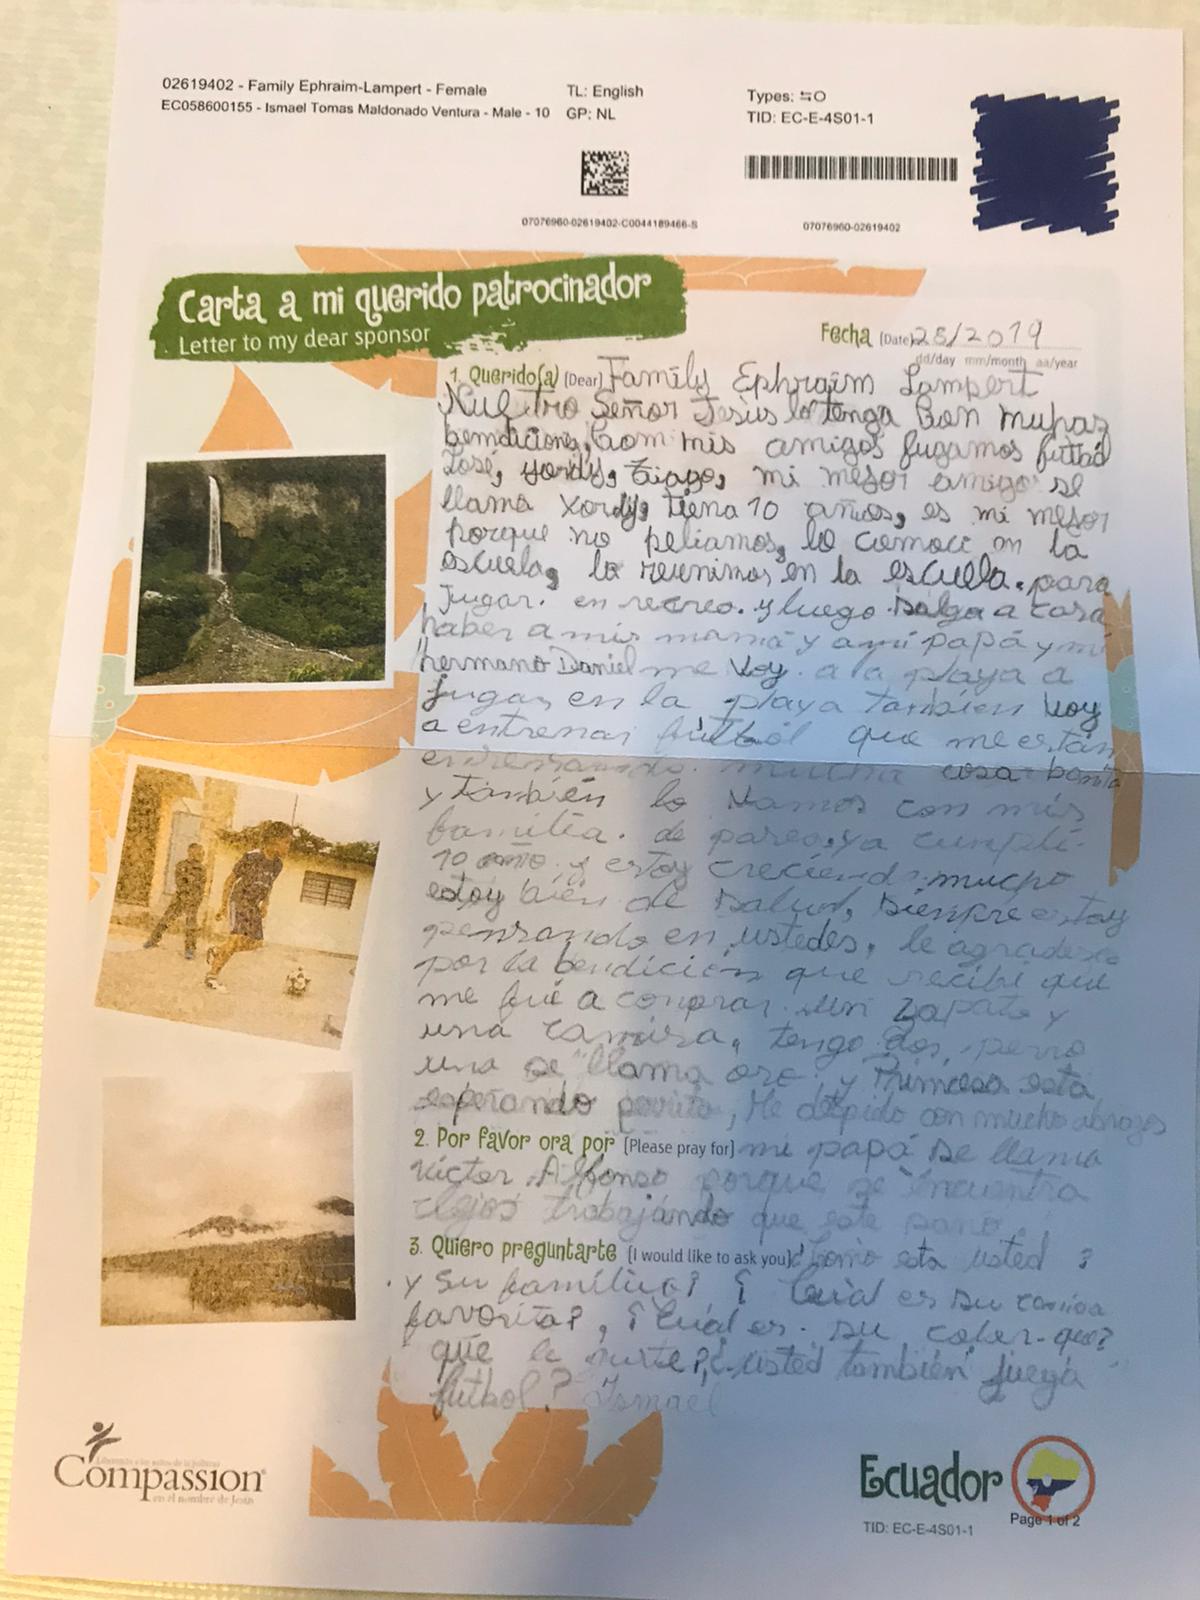 02619402 - Family Ephraim-Lampert - Female
EC058600155 - Ismael Tomas Maldonado Ventura - Male - 10
TL: English
GP: NL
Types: ⇆O
TID: EC-E-4S01-1
07076960-02619402-C0044189466-S
07076960-02619402
Carta a mi querido patrocinador
Letter to my dear sponsor
Fecha (Date) 25/2019
dd/day mm/month aa/year
1. Querido(a) (Dear) Family Ephraim Lampert
Nuestro Señor Jesús lo tenga Bon
bendicions, com mis amigos fugamos futbol
José, yordy, Tiago, mi mejor amigo se
llama Xordy, tiena 10 años, es mi mejor
porque no peliamos, lo comoci en la
escuela, lo reunimos en la escuela. para
Jugar. en recreo. y luego salgo a casa
haber a mis mamá y ami papá y mi
hermano Daniel me voy a la playa a
jugar en la playa también voy
a entrenar fútbol que me están
mucha cosa bonita
y también lo Vamos con mis
familia. de paseo, ya cumplí
10 año y estoy creciendo mucho
estoy bien de salud, siempre estoy
pensando en ustedes, le agradesco
por la bendición que recibí que
me fué a comprar un zapato y
una camisa, tengo dos, perro
uno se llama oro y Princesa esta
esperando, Me despido con mucho abrazos
2. Por favor ora por (Please pray for) mi papá se llama
Víctor Alfonso porque se encuentra
lejos trabajándo que este
3. Quiero preguntarte (I would like to ask you) ¿Como esta usted?
y su família? ¿ Cuál es su comida
favorita?, ¿ Cuál es su color que?
que le ¿usted también juega
fútbol? Ismael
Liberando a los niños de la pobreza
Compassion
en el nombre de Jesús
Ecuador
TID: EC-E-4S01-1
Page 1 of 2